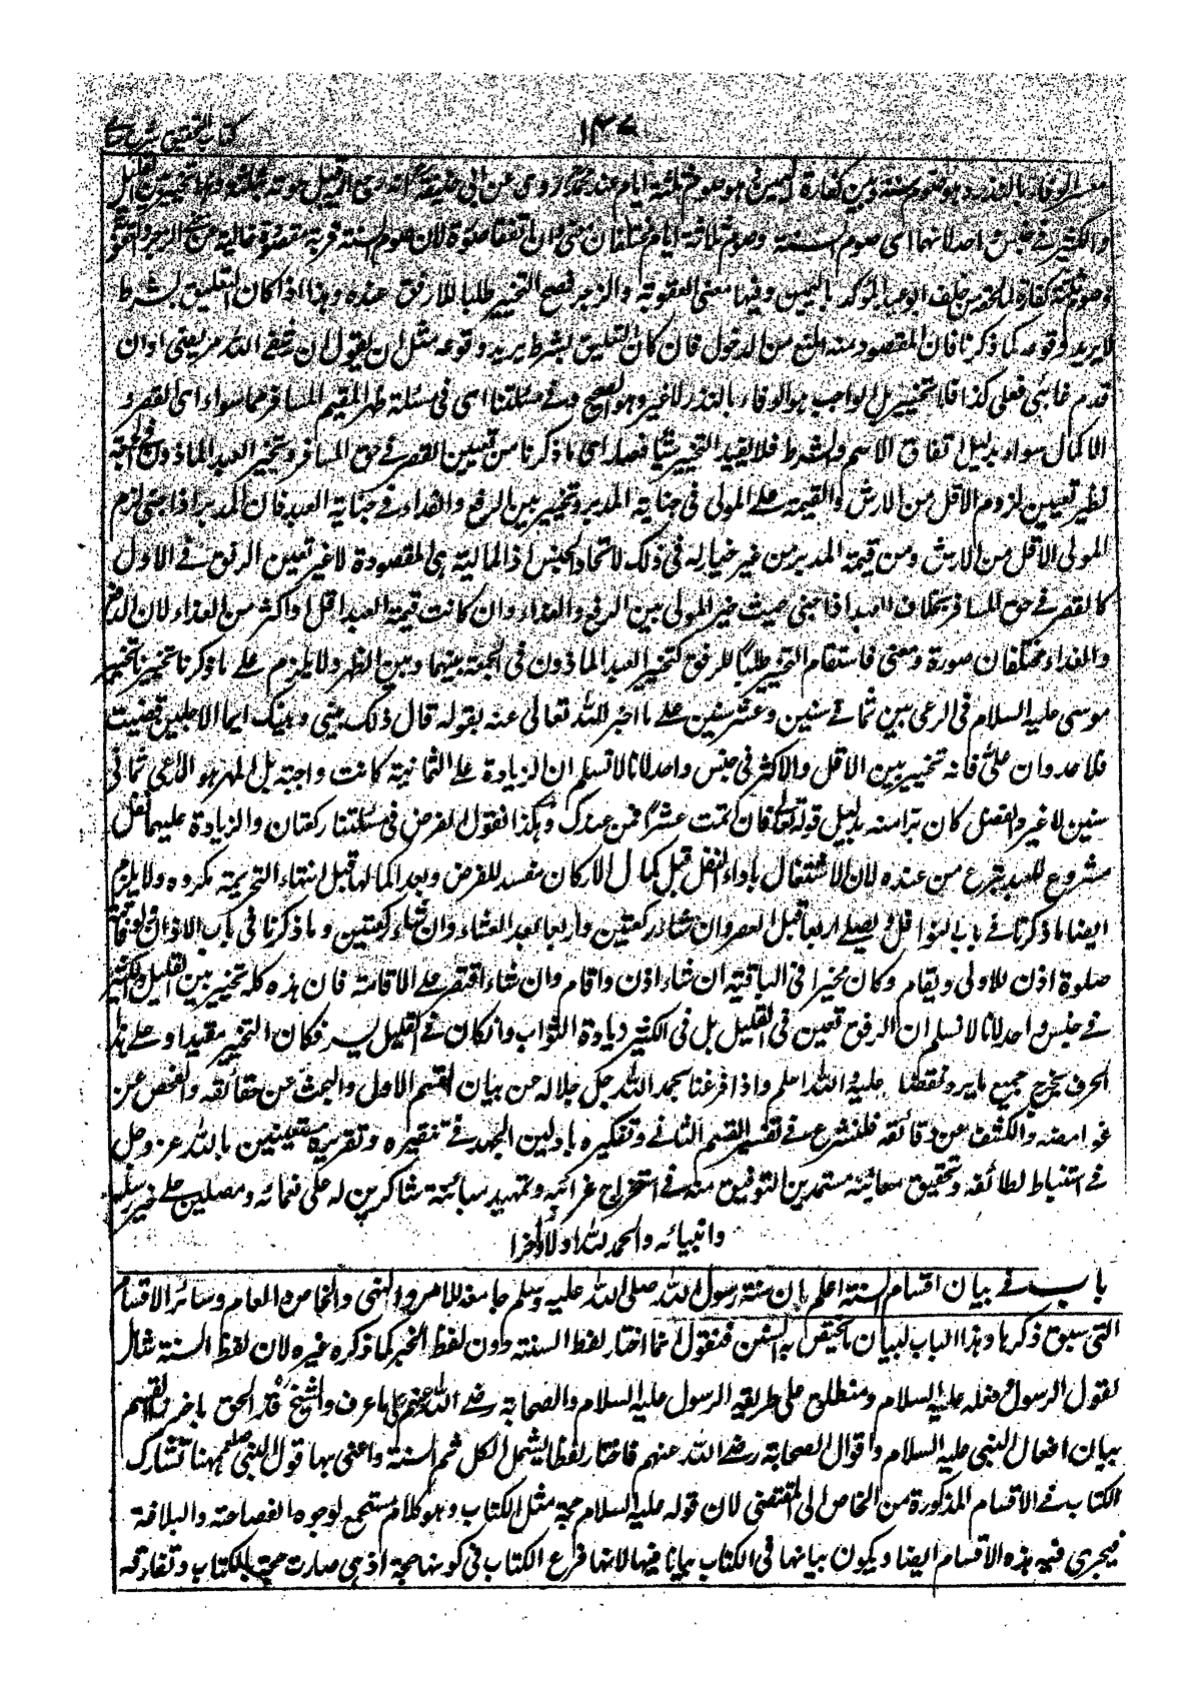 كتاب التحقيق شرح
١٣٧
الوفاء بالنذر وهو صوم سنة وبين كفارة اليمين وهو صوم ثلثة ايام عند محمد روى عن ابى حنيفة انه رجع اليه قبل موته
والكثير فى جنس واحد لانهما اى صوم السنة وصوم ثلاثة ايام مختلفان معنى وان اتفقا صورة لان صوم السنة قربة مقصودة خالية عن معنى الزجر والعقوبة
وصوم الثلثة كفارة لما لحقه من خلف الوعد الموكد باليمين وفيها معنى العقوبة والزجر فصح التخيير طلبا للارفق عنده وهذا اذا كان التعليق بشرط
لا يريد وقوعه كما ذكرنا فان المقصود منه المنع من الدخول فان كان التعليق بشرط يريد وقوعه مثل ان يقول ان شفى الله مريضى او ان
قدم غائبى فعلى كذا فلا تخيير بل الواجب هو الوفاء بالنذر لا غير وهو الصحيح وفى مسئلتنا اى فى مسئلة ظهر المقيم والمسافر هما سواء اى القصر و
الاكمال سواء بدليل اتفاق الاسم والشرط فلا يفيد التخيير شيئا فصار اى ما ذكرنا من تعيين القصر فى حق المسافر وتخيير العبد الماذون فى الجمعة
نظير تعيين لزوم الاقل من الارش والقيمة على المولى فى جناية المدبر وتخيير بين الدفع والفداء فى جناية العبد فان المدبر اذا جنى لزم
المولى الاقل من الارش ومن قيمة المدبر من غير خيار له فى ذلك لاتحاد الجنس اذ المالية هى المقصودة لا غير تعين الرفق فى الاول
كالقصر فى حق المسافر بخلاف العبد اذا جنى حيث خير المولى بين الدفع والفداء وان كانت قيمة العبد اقل او اكثر من الفداء لان الدفع
والفداء مختلفان صورة ومعنى فاستقام التخيير طلبا للرفق كتخيير العبد الماذون فى الجمعة بينهما وبين الظهر ولا يلزم على ما ذكرنا تخيير
موسى عليه السلام فى الرعى بين ثمانى سنين وعشر سنين على ما اخبر الله تعالى عنه بقوله قال ذلك بينى وبينك ايما الاجلين قضيت
فلا عدوان على فانه تخيير بين الاقل والاكثر فى جنس واحد لانا لا نسلم ان الزيادة على الثمانية كانت واجبة بل المهر هو الرعى ثمانى
سنين لا غير والفضل كان برا منه بدليل قوله تعالى فان اتممت عشرا فمن عندك وهكذا نقول الفرض فى مسئلتنا ركعتان والزيادة عليهما نفل
مشروع للعبد تبرع من عنده لان الاشتغال باداء النفل قبل كمال الاركان مفسد للفرض وبعد اكمالها قبل انتهاء التحريمة مكروه ولا يلزم
ايضا ما ذكرنا فى باب النوافل يصلى اربعا قبل العصر وان شاء ركعتين واربعا بعد العشاء وان شاء ركعتين وما ذكرنا فى باب الاذان
صلوة اذن للاولى ويقام وكان مخيرا فى الباقية ان شاء اذن واقام وان شاء اقتصر على الاقامة فان هذه كله تخيير بين القليل والكثير
فى جنس واحد لانا لا نسلم ان الرفق تعين فى القليل بل فى الكثير زيادة الثواب وان كان فى القليل يسر فكان التخيير مفيدا وعلى هذا
الحرف يخرج جميع ما يرد نقضا عليه والله اعلم واذا فرغنا بحمد الله جل جلاله من بيان القسم الاول والبحث عن حقائقه والفحص عن
غوامضه والكشف عن دقائقه فلنشرع فى تفسير القسم الثانى وتفكيره باذلين الجهد فى تنقيره وتقريره مستعينين بالله عز وجل
فى استنباط لطائفه وتحقيق معانيه مستمدين التوفيق منه فى استخراج غرائبه وتمهيد مبانيه شاكرين له على نعمائه ومصلين على خير رسله
وانبيائه والحمد لله اولا وآخرا
باب فى بيان اقسام السنة اعلم بان سنة رسول الله صلى الله عليه وسلم جامعة للامر والنهى والخاص والعام وسائر الاقسام
التى سبق ذكرها وهذا الباب لبيان ما يختص به السنن فنقول انما اختار لفظ السنة دون لفظ الخبر كما ذكره غيره لان لفظ السنة شامل
لقول الرسول وفعله عليه السلام ومنطلق على طريقة الرسول عليه السلام والصحابة رضى الله عنهم على ما عرف والشيخ قد الحق باخر هذا القسم
بيان افعال النبى عليه السلام واقوال الصحابة رضى الله عنهم فاختار لفظا يشمل الكل ثم السنة واعنى بها قول النبى صلعم ههنا تشارك
الكتاب فى الاقسام المذكورة من الخاص الى المقتضى لان قوله عليه السلام حجة مثل الكتاب وهو كلام مستجمع لوجوه الفصاحة والبلاغة
فيجرى فيه هذه الاقسام ايضا ويكون بيانها فى الكتاب بيانا فيها لانها فرع الكتاب فى كونها حجة اذ هى صارت حجة بالكتاب وتفارقه